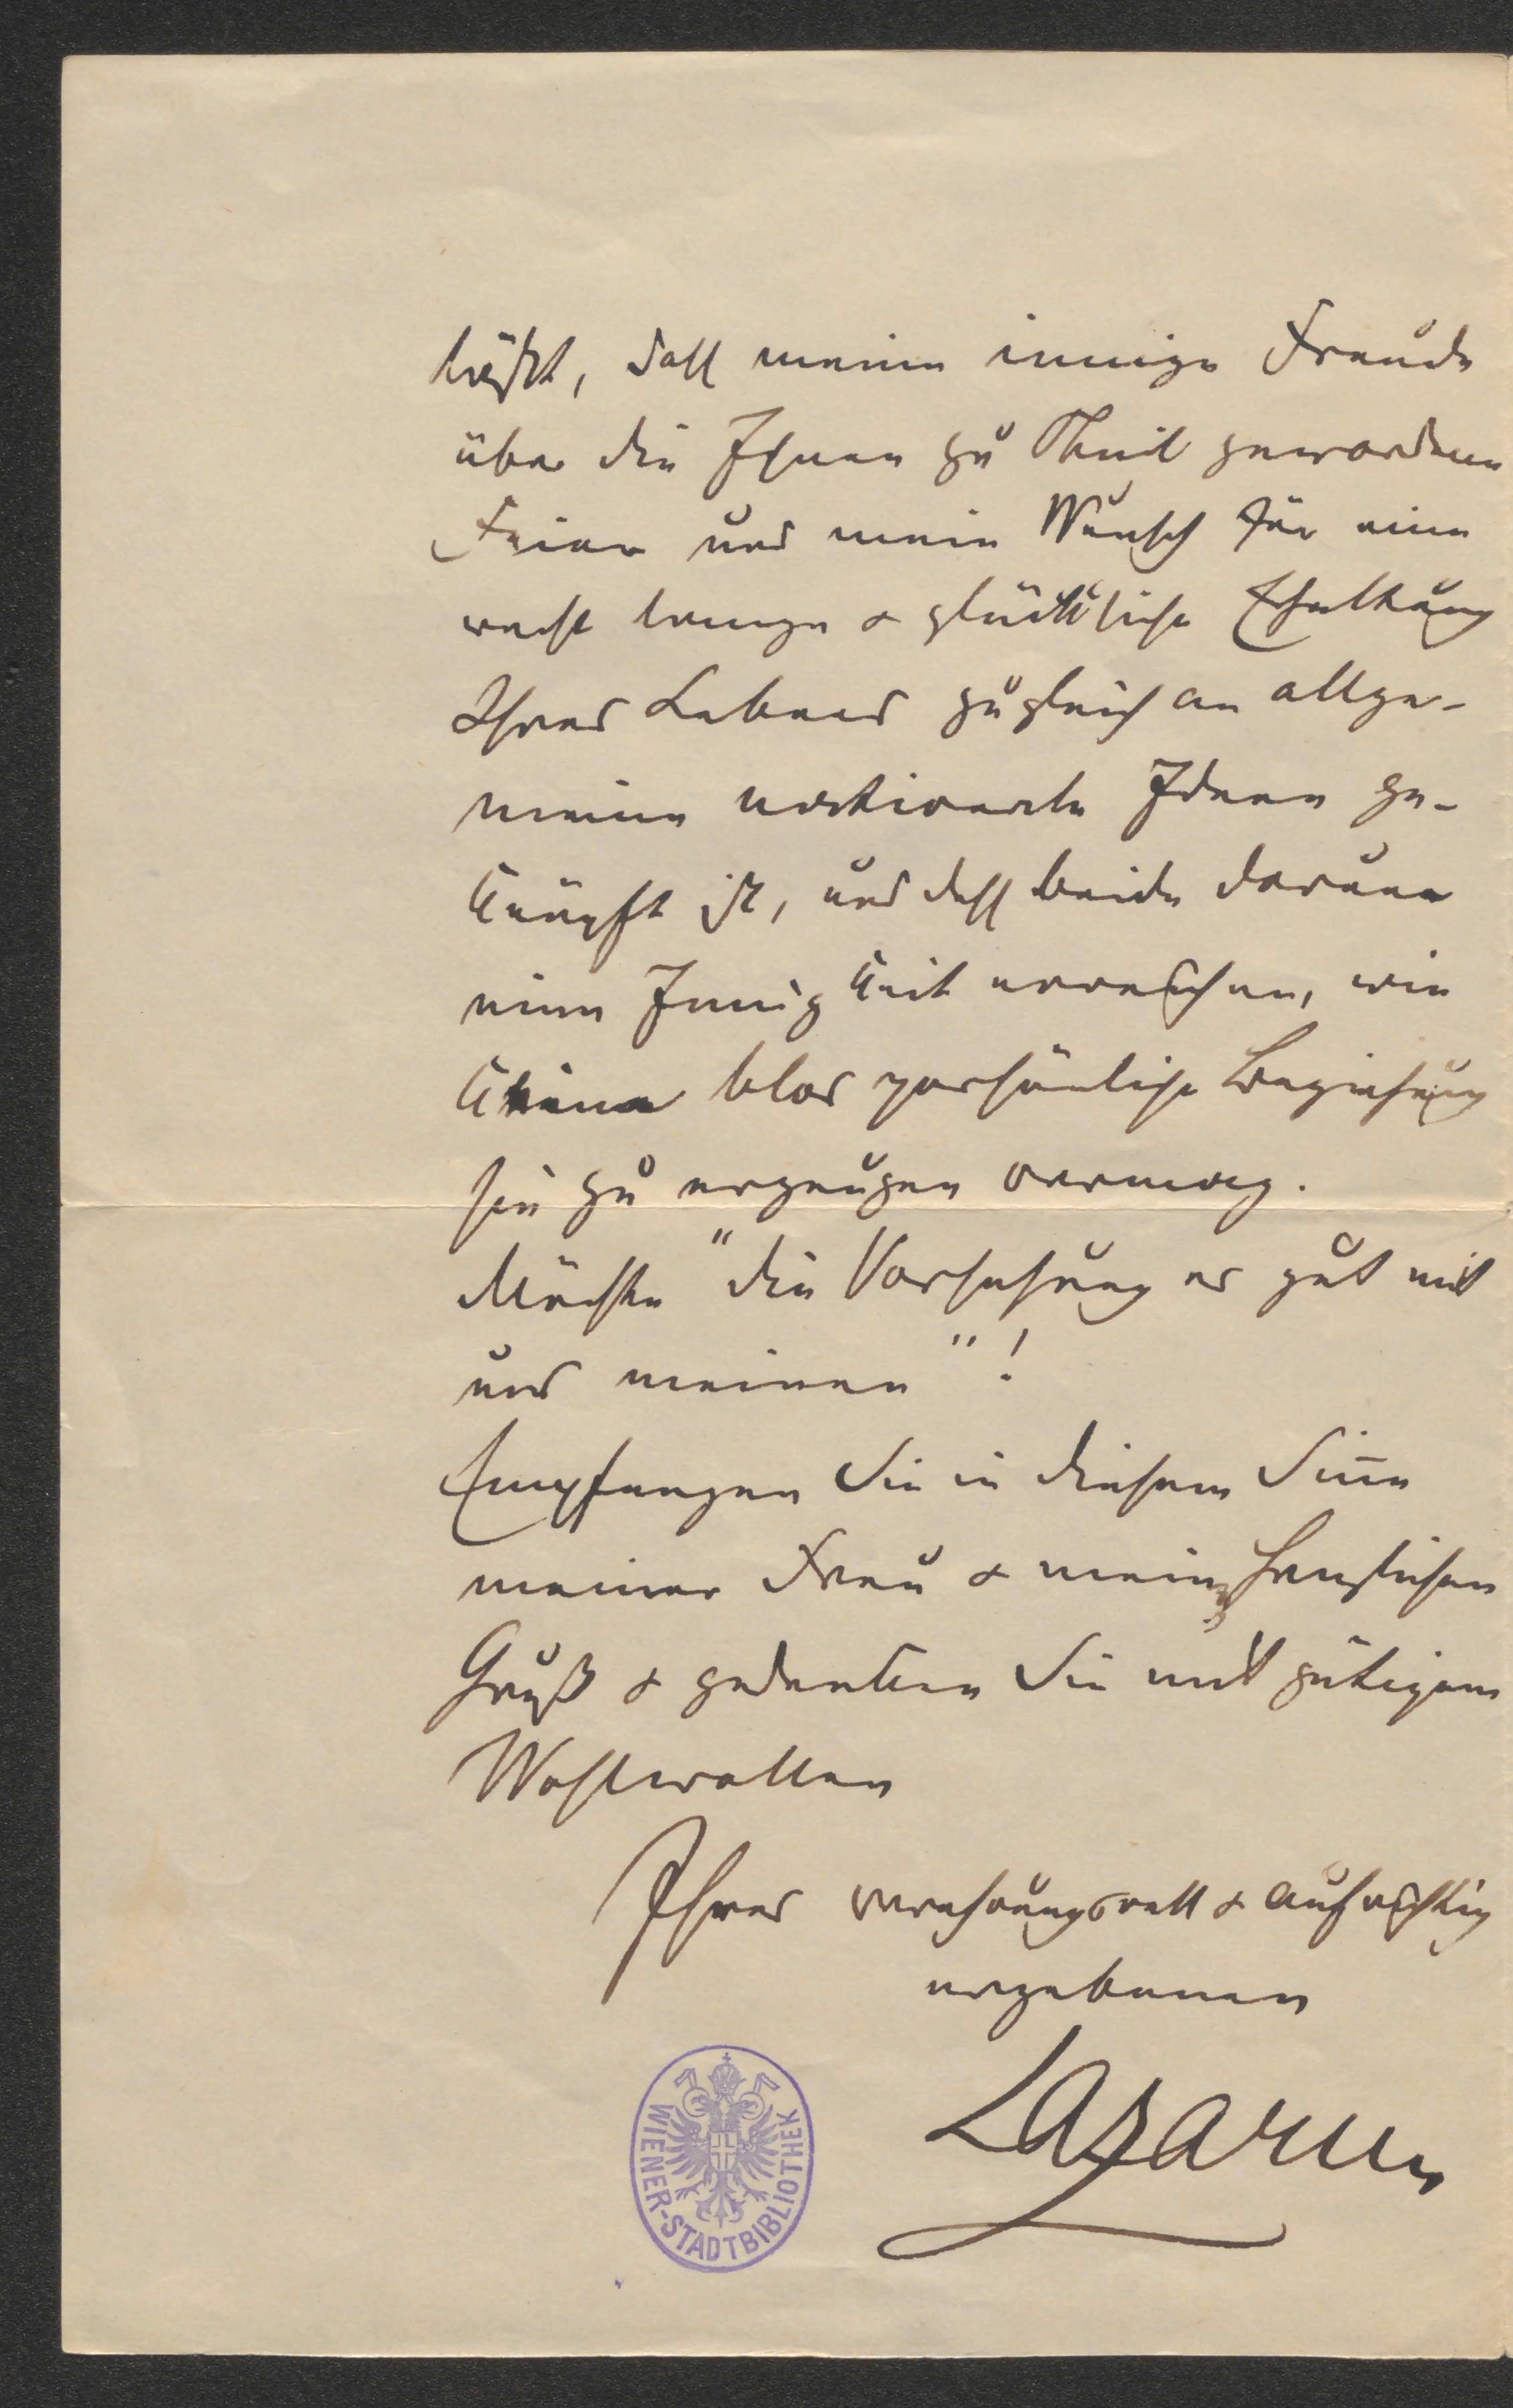 höht, daß meine innige Freude
über die Ihnen zu Theil gewordene
Feier und mein Wunsch für eine
recht lange & glückliche Erhaltung
Ihres Lebens zugleich an allge-
meine nationale Ideen ge-
knüpft ist, und daß beide darum
eine Innigkeit erreichen, wie
keine blos persönliche Beziehung
sie zu erzeugen vermag.
Möchte "die Vorsehung es gut mit
uns meinen"!
Empfangen Sie in diesem Sinne
meiner Frau & meinen herzlichen
Gruß & gedenken Sie mit gütigem
Wohlwollen
Ihres verehrungsvoll & aufrichtig
ergebenen
Lazarus
WIENER-STADTBIBLIOTHEK